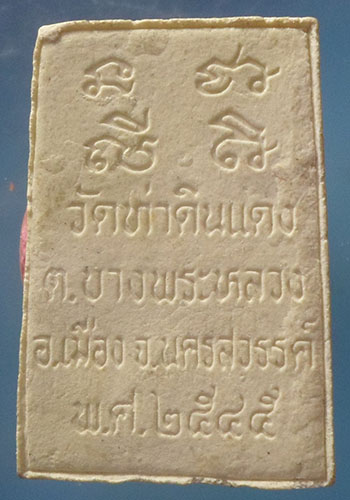 วัดท่าดินแดง
ต.บางพระหลวง
อ.เมือง จ.นครสวรรค์
พ.ศ.๒๕๔๕